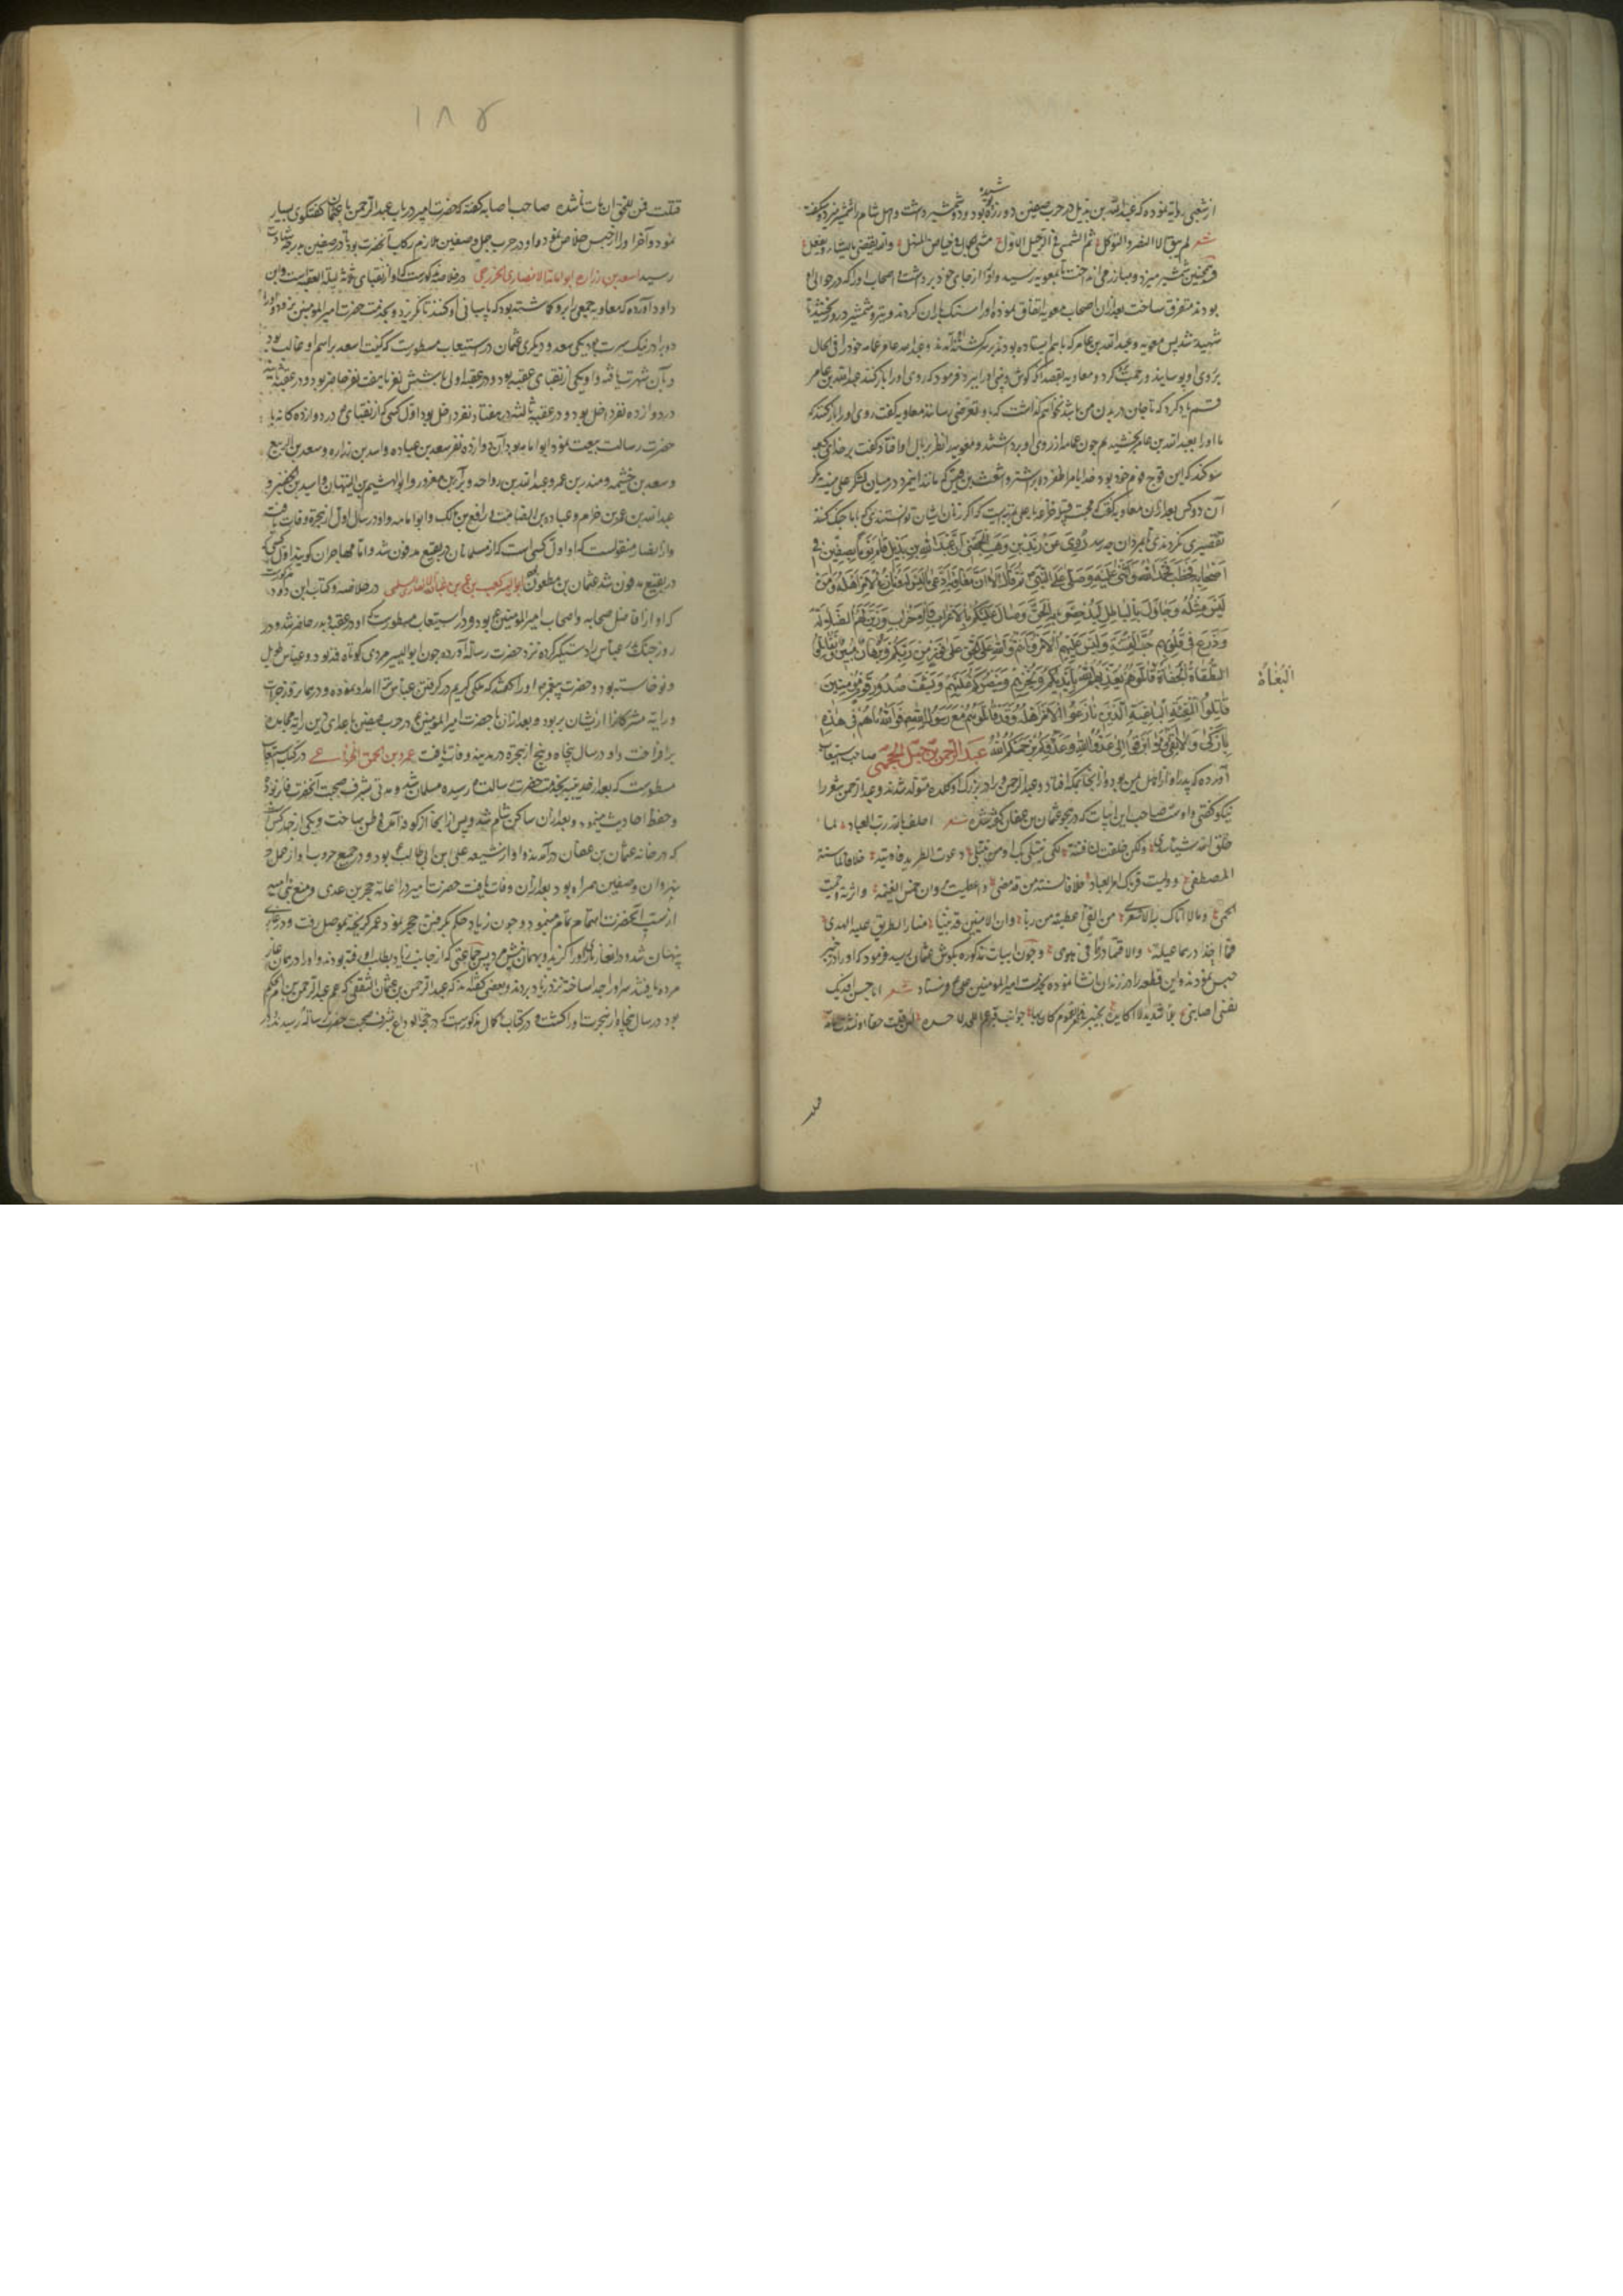 از شعبی روایة نموده که عبدالله بن بدیل در حرب صفین دو زره پوشیده بود و دو شمشیر داشت و اهل شام را شمشیر میزد و میکفت
شعر لم یبق الا الصبر والتوکل ثم التمشی فی الرعیل الاول مشی الجمال فی حیاض المنهل والله یقضی ما یشاء ویفعل
و همچنین شمشیر میزد و مبارز می انداخت تا بمعویه رسید و او را از جای خود برداشت و اصحاب او را که در حوالی او
بودند متفرق ساخت بعد از آن اصحاب معویه اتفاق نموده او را سنک باران کردند و شمشیر درو کشیدند تا
شهید شد پس معویه و عبدالله بن عامر که با هم ایستاده بودند بر سر کشته او آمدند و عبدالله عامر عمامه خود را فی الحال
بر روی او پوسانید و رحمت کرد و معاویه قصد آنکه کوش و بینی او را ببرد فرمود که روی او را باز کنند عبدالله بن عامر
قسم یاد کرد که تا جان در بدن من باشد نخواهم کذاشت که باو تعرضی رسانند معاویه کفت روی او را باز کنند که
ما او را بعبدالله بن عامر بخشیدیم چون عمامه از روی او برداشتند و معویه را نظر بر او افتاد کفت بخدای کعبه
سوکند که این قوچ قوم خود بود خدایا مرا ظفر ده بر اشتر و اشعث بن قیس که مانند این مرد در میان لشکر علی نیست مکر
آن دو کس بعد از آن معاویه کفت که محبت قبیله خزاعه با علی بمرتبه ایست که اکر زنان ایشان توانستندی که با ما جنک کنند
تقصیری نکردندی تا بمردان چه رسد رُوِیَ عن زید بن وهب الجهنی ان عبدالله بن بدیل قام یوما بصفین فی
اصحابه فخطب فحمد الله واثنی علیه وصلی علی النبی ثم قال الا ان معاویة ادعی ما لیس له ونازع الامر اهله ومن
لیس مثله وجادل بالباطل لیدحض به الحق وصال علیکم بالاعراب والاحزاب وزین لهم الضلالة
وزرع فی قلوبهم حب الفتنة ولبس علیهم الامر وانتم والله علی الحق علی نور من ربکم وبرهان مبین فقاتلوا
الطغاة الجفاة قاتلوهم یعذبهم الله بایدیکم ویخزهم وینصرکم علیهم ویشف صدور قوم مؤمنین
البُغاة
قاتلوا الفئة الباغیة الذین نازعوا الامر اهله وقد قاتلتموهم مع رسول الله فوالله ما هم فی هذه
بازکی ولا اتقی ولا ابر قوموا الی عدو الله وعدوکم رحمکم الله عبد الرحمن بن حنبل الجمحی صاحب استیعاب
آورده که پدر او از اهل یمن بود و از آنجا بمکه افتاد و عبدالرحمن و برادر بزرک او کلده متولد شدند و عبدالرحمن شعر را
نیکو کفتی و اوست صاحب این ابیات که در هجو عثمان بن عفان کفته شعر احلف بالله رب العباد ما
خلق الله شیئا سدی ولکن خلقت لنا فتنة لکی نبتلی بک او تبتلی دعوت الطرید فادنیته خلافا لسنة
المصطفی وولیت قرباک امر العباد خلافا لسنة من قد مضی واعطیت مروان خمس الغنیمة واثرته وحمیت
الحمی ومالا اتاک به الاشعری من الفئ اعطیته من دنا وان الامینین قد بینا منار الطریق علیه الهدی
فما اخذا درهما غیلة ولا قسما درهما فی هوی و چون ابیات مذکوره بکوش عثمان رسید فرمود که او را در خیبر
حبس نمودند و این قطعه را در زندان انشا نموده بخدمت امیرالمومنین علی فرستاد شعر
۱۸۴
صاحب اصابه کفته که حضرت امیر در باب عبدالرحمن با عثمان کفتکوی بسیار
نمود و آخر او را از حبس خلاص نمود و او در حرب جمل و صفین ملازم رکاب آنحضرت بود تا در صفین بدرجه شهادت
رسید اسعد بن زراره ابو امامة الانصاری الخزرجی در خلاصه مذکورست که او از نقبای ثلثه لیلة العقبه است و ابن
داود آورده که معاویه جمعی را برو کماشته بود که پاسبانی او کنند تا نکریزد و بخدمت حضرت امیرالمومنین نرود و او را
دو برادر نیک سیرت بود یکی سعد و دیکری عثمان در استیعاب مسطورست که کنیت اسعد بر اسم او غالب بود
و بآن شهرت یافته و او یکی از نقبای عقبه بود و در عقبه اولی با شش نفر یا هفت نفر حاضر بود و در عقبه ثانیه
در دوازده نفر داخل بود و در عقبه ثالثه در هفتاد نفر داخل بود اول کسی که از نقبای دوازده کانه با
حضرت رسالت بیعت نمود ابو امامه بود آن دوازده نفر سعد بن عباده و اسعد بن زراره و سعد بن الربیع
و سعد بن خثیمه و منذر بن عمرو و عبدالله بن رواحه و براء بن معرور و ابو الهیثم بن التیهان و اسید بن حضیر و
عبدالله بن عمرو بن حرام و عباده بن الصامت و رافع بن مالک و ابو امامه و او در سال اول از هجرة وفات یافت
و از انصار منقولست که او اول کسی است که از مسلمانان در بقیع مدفون شد و اما مهاجران کویند اول کسی که
در بقیع مدفون شد عثمان بن مظعون بود ابو الیسر کعب بن عمرو بن عباد الانصاری السلمی در خلاصه و کتاب ابن داود مذکورست
که او از افاضل صحابه و اصحاب امیرالمومنین بود و در استیعاب مسطورست که او در عقبه و بدر حاضر شد و در
روز جنک بدر عباس را دستکیر کرده نزد حضرت رسالة آورده چون ابوالیسر مردی کوتاه قد بود و عباس طویل
و نوخاسته بود و حضرت پیغمبر او را کفتند که ملکی کریم در کرفتن عباس ترا امداد نموده و در بدر
و رایة مشرکان از ایشان بربود و بعد از آن با حضرت امیرالمومنین در حرب صفین با اعدای دین رایة مجاهده
برافراخت و او در سال پنجاه و پنج از هجرة در مدینه وفات یافت عمرو بن الحمق الخزاعی در کتاب استیعاب
مسطورست که بعد از حدیبیه بخدمت حضرت رسالت رسیده مسلمان شد و مدتی بشرف صحبت آنحضرت فایز بوده
و حفظ احادیث مینمود و بعد از آن ساکن شام شد و پس از آنجا انتقال بکوفه آمده وطن ساخت و یکی از چهار کس است
که در خانه عثمان بن عفان درآمدند و او از شیعه علی ابن ابی طالب بود و در جمیع حروب او از جمل و
نهروان و صفین همراه بود بعد از آن وفات یافت حضرت امیر در اعانة حجر بن عدی و منع بنی امیه
از سب آنحضرت اهتمام تمام مینمود و چون زیاد حکم بکرفتن حجر نمود عمرو کریخته بموصل رفت و در غاری
پنهان شد و در آن غار ماری او را کزید و بهمان نیش مرد پس جماعتی که از جانب زیاد بطلب او رفته بودند او را در همان غار
مرده یافتند سر او را جدا ساخته نزد زیاد بردند و بعضی کفته اند که عبدالرحمن بن عثمان الثقفی که عم عبدالرحمن بن ام الحکم
بود در سال پنجاه از هجرت او را کشت و در کتاب کمال مذکورست که در حجة الوداع بشرف صحبت حضرت رسالة رسید